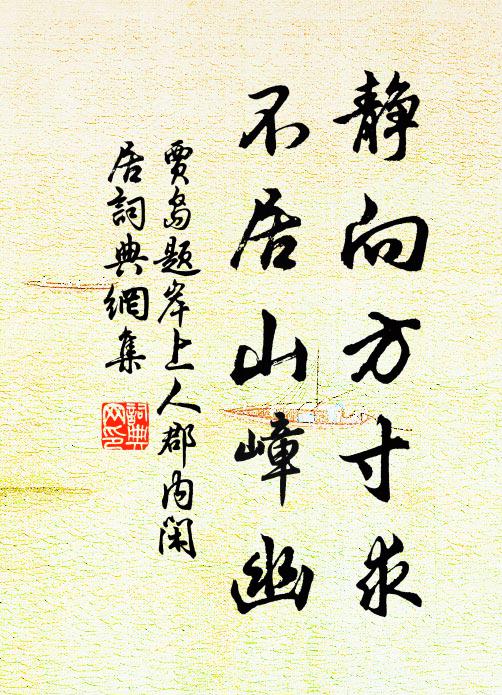 静向方寸求
不居山嶂幽
賈島題岸上人郡内閑
居詞典網集
詞典
网印